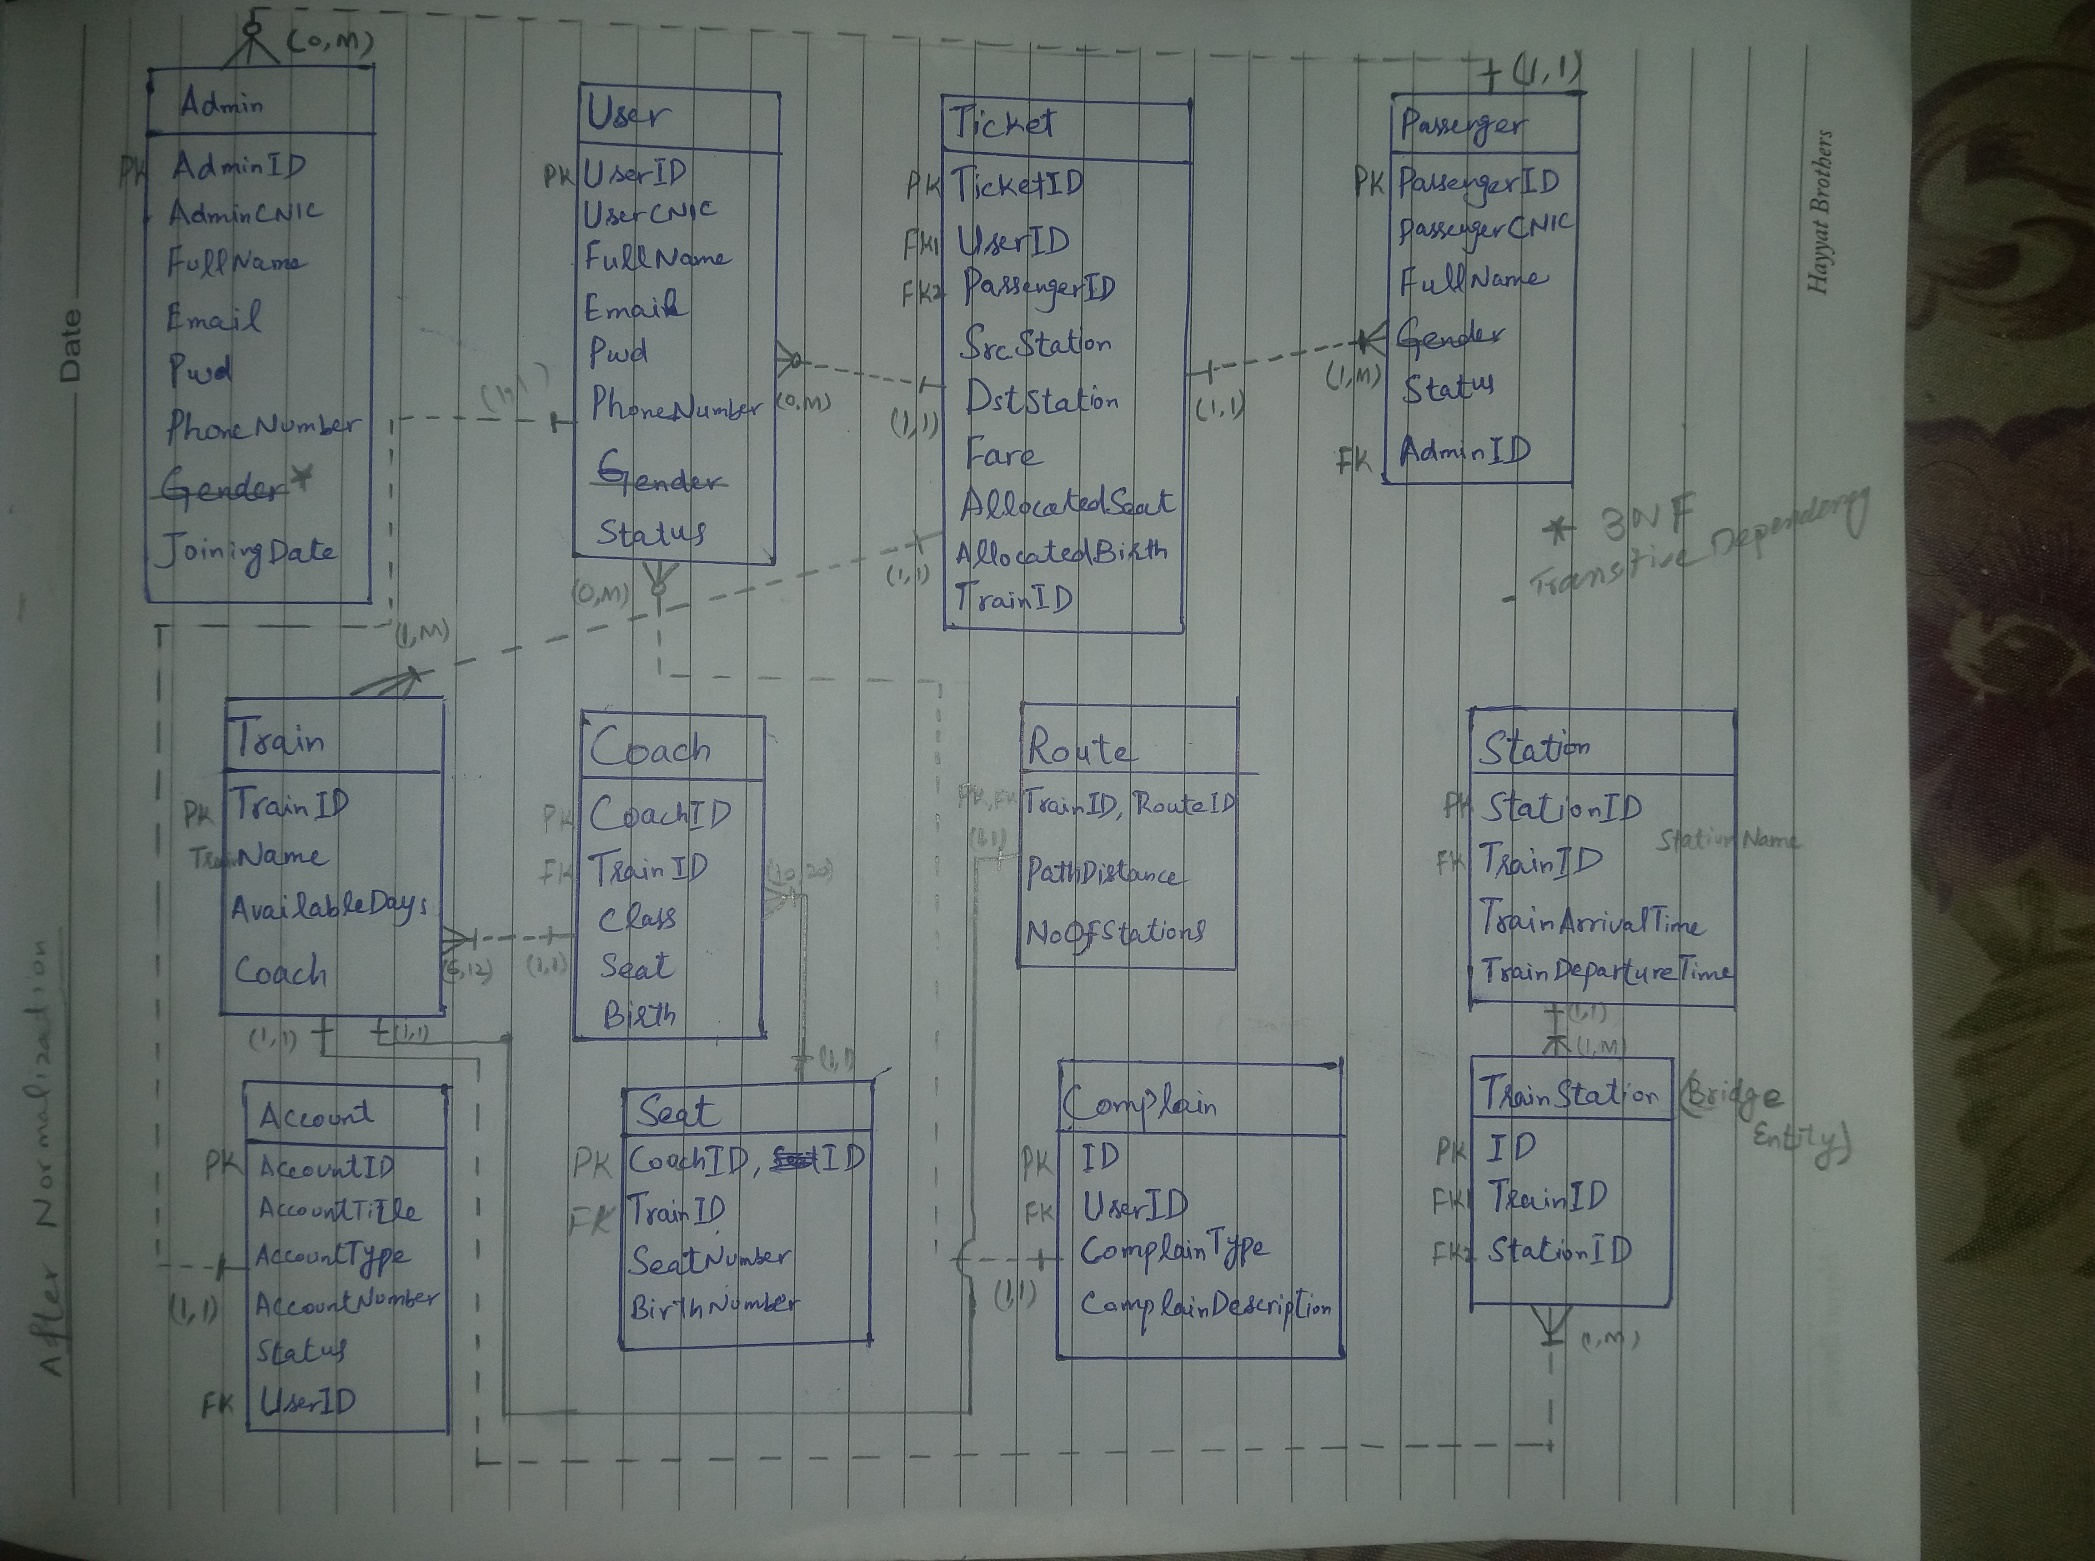 Date
Hayyat Brothers
After Normalization
(0,M)
(1,1)
Admin
PK AdminID
AdminCNIC
FullName
Email
Pwd
PhoneNumber
Gender*
JoiningDate
User
PK UserID
UserCNIC
FullName
Email
Pwd
PhoneNumber
Gender
Status
(0,M)
(0,M)
(1,1)
Ticket
PK TicketID
FK1 UserID
FK2 PassengerID
SrcStation
DstStation
Fare
AllocatedSeat
AllocatedBirth
TrainID
(1,1)
(1,1)
(1,M)
Passenger
PK PassengerID
PassengerCNIC
FullName
Gender
Status
FK AdminID
* 3NF
- Transitive Dependency
(1,M)
Train
PK TrainID
TrainName
AvailableDays
Coach
(6,12)
(1,1)
(1,1)
(1,1)
Coach
PK CoachID
FK TrainID
Class
Seat
Birth
(10,20)
(1,1)
Route
PK, FK TrainID, RouteID
(1,1)
PathDistance
NoOfStations
Station
PK StationID
StationName
FK TrainID
TrainArrivalTime
TrainDepartureTime
(1,1)
(1,M)
Account
PK AccountID
AccountTitle
AccountType
AccountNumber
Status
FK UserID
(1,1)
Seat
PK CoachID, ID
FK TrainID
SeatNumber
BirthNumber
Complain
PK ID
FK UserID
ComplainType
ComplainDescription
(1,1)
TrainStation (Bridge
Entity)
PK ID
FK1 TrainID
FK2 StationID
(1,M)